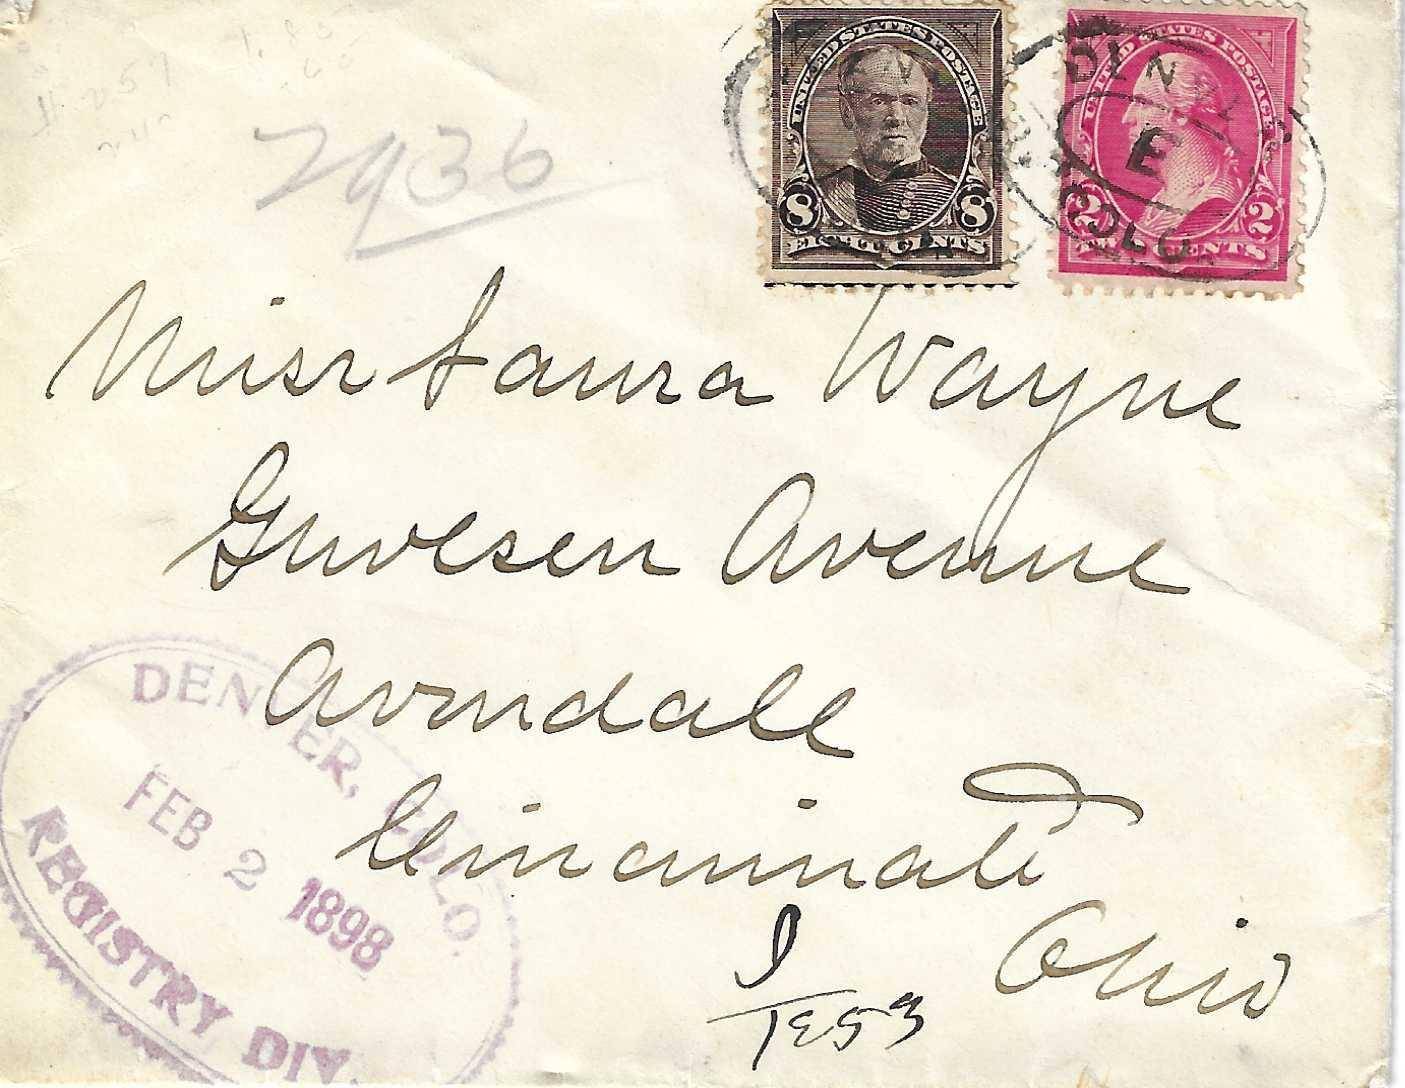 UNITED STATES POSTAGE
8 8
EIGHT CENTS
UNITED STATES POSTAGE
2 2
TWO CENTS
DENVER
E
COLO.
2936
Miss Laura Wayne
Avenue
Avondale
Cincinnati
Ohio
DENVER, COLO.
FEB 2 1898
REGISTRY DIV.